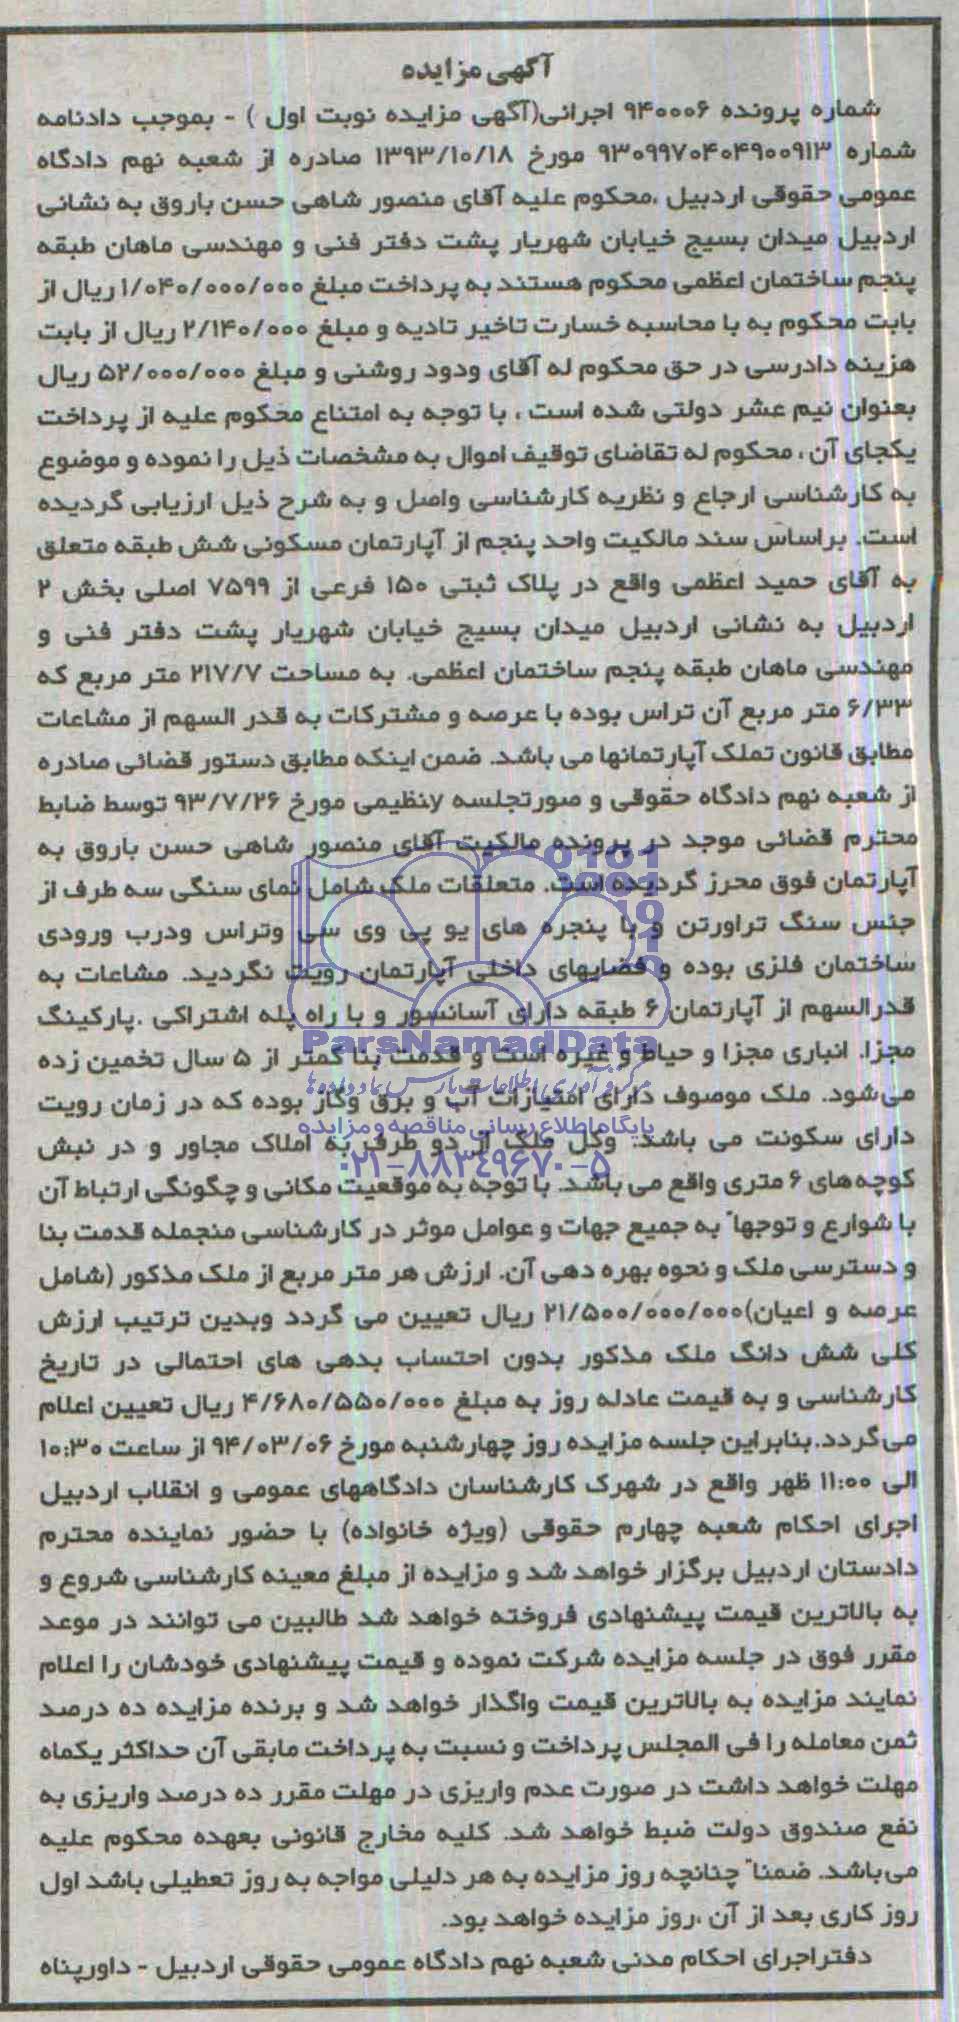 آگهی مزایده
شماره پرونده ۹۴۰۰۰۶ اجرائی(آگهی مزایده نوبت اول ) - بموجب دادنامه
شماره ۹۳۰۹۹۷۰۴۰۴۹۰۰۹۱۳ مورخ ۱۳۹۳/۱۰/۱۸ صادره از شعبه نهم دادگاه
عمومی حقوقی اردبیل ،محکوم علیه آقای منصور شاهی حسن باروق به نشانی
اردبیل میدان بسیج خیابان شهریار پشت دفتر فنی و مهندسی ماهان طبقه
پنجم ساختمان اعظمی محکوم هستند به پرداخت مبلغ ۱/۰۴۰/۰۰۰/۰۰۰ ریال از
بابت محکوم به با محاسبه خسارت تاخیر تادیه و مبلغ ۲/۱۴۰/۰۰۰ ریال از بابت
هزینه دادرسی در حق محکوم له آقای ودود روشنی و مبلغ ۵۲/۰۰۰/۰۰۰ ریال
بعنوان نیم عشر دولتی شده است ، با توجه به امتناع محکوم علیه از پرداخت
یکجای آن ، محکوم له تقاضای توقیف اموال به مشخصات ذیل را نموده و موضوع
به کارشناسی ارجاع و نظریه کارشناسی واصل و به شرح ذیل ارزیابی گردیده
است. براساس سند مالکیت واحد پنجم از آپارتمان مسکونی شش طبقه متعلق
به آقای حمید اعظمی واقع در پلاک ثبتی ۱۵۰ فرعی از ۷۵۹۹ اصلی بخش ۲
اردبیل به نشانی اردبیل میدان بسیج خیابان شهریار پشت دفتر فنی و
مهندسی ماهان طبقه پنجم ساختمان اعظمی. به مساحت ۲۱۷/۷ متر مربع که
۶/۳۳ متر مربع آن تراس بوده با عرصه و مشترکات به قدر السهم از مشاعات
مطابق قانون تملک آپارتمانها می باشد. ضمن اینکه مطابق دستور قضائی صادره
از شعبه نهم دادگاه حقوقی و صورتجلسه yنظیمی مورخ ۹۳/۷/۲۶ توسط ضابط
محترم قضائی موجد در پرونده مالکیت آقای منصور شاهی حسن باروق به
آپارتمان فوق محرز گردیده است. متعلقات ملک شامل نمای سنگی سه طرف از
جنس سنگ تراورتن و با پنجره های یو پی وی سی وتراس ودرب ورودی
ساختمان فلزی بوده و فضایهای داخلی آپارتمان رویت نگردید. مشاعات به
قدرالسهم از آپارتمان ۶ طبقه دارای آسانسور و با راه پله اشتراکی .پارکینگ
ParsNamadData
مجزا. انباری مجزا و حیاط و غیره است و قدمت بنا کمتر از ۵ سال تخمین زده
مرکز فرآوری اطلاعات پارس نماد داده ها
می‌شود. ملک موصوف دارای امتیازات آب و برق وگاز بوده که در زمان رویت
پایگاه اطلاع رسانی مناقصه و مزایده
دارای سکونت می باشد. وکل ملک از دو طرف به املاک مجاور و در نبش
۰۲۱-۸۸۳۴۹۶۷۰-۵
کوچه‌های ۶ متری واقع می باشد. با توجه به موقعیت مکانی و چگونگی ارتباط آن
با شوارع و توجهاً به جمیع جهات و عوامل موثر در کارشناسی منجمله قدمت بنا
و دسترسی ملک و نحوه بهره دهی آن. ارزش هر متر مربع از ملک مذکور (شامل
عرصه و اعیان)۲۱/۵۰۰/۰۰۰/۰۰۰ ریال تعیین می گردد وبدین ترتیب ارزش
کلی شش دانگ ملک مذکور بدون احتساب بدهی های احتمالی در تاریخ
کارشناسی و به قیمت عادله روز به مبلغ ۴/۶۸۰/۵۵۰/۰۰۰ ریال تعیین اعلام
می‌گردد.بنابراین جلسه مزایده روز چهارشنبه مورخ ۹۴/۰۳/۰۶ از ساعت ۱۰:۳۰
الی ۱۱:۰۰ ظهر واقع در شهرک کارشناسان دادگاههای عمومی و انقلاب اردبیل
اجرای احکام شعبه چهارم حقوقی (ویژه خانواده) با حضور نماینده محترم
دادستان اردبیل برگزار خواهد شد و مزایده از مبلغ معینه کارشناسی شروع و
به بالاترین قیمت پیشنهادی فروخته خواهد شد طالبین می توانند در موعد
مقرر فوق در جلسه مزایده شرکت نموده و قیمت پیشنهادی خودشان را اعلام
نمایند مزایده به بالاترین قیمت واگذار خواهد شد و برنده مزایده ده درصد
ثمن معامله را فی المجلس پرداخت و نسبت به پرداخت مابقی آن حداکثر یکماه
مهلت خواهد داشت در صورت عدم واریزی در مهلت مقرر ده درصد واریزی به
نفع صندوق دولت ضبط خواهد شد. کلیه مخارج قانونی بعهده محکوم علیه
می‌باشد. ضمناً چنانچه روز مزایده به هر دلیلی مواجه به روز تعطیلی باشد اول
روز کاری بعد از آن ،روز مزایده خواهد بود.
دفتراجرای احکام مدنی شعبه نهم دادگاه عمومی حقوقی اردبیل - داورپناه